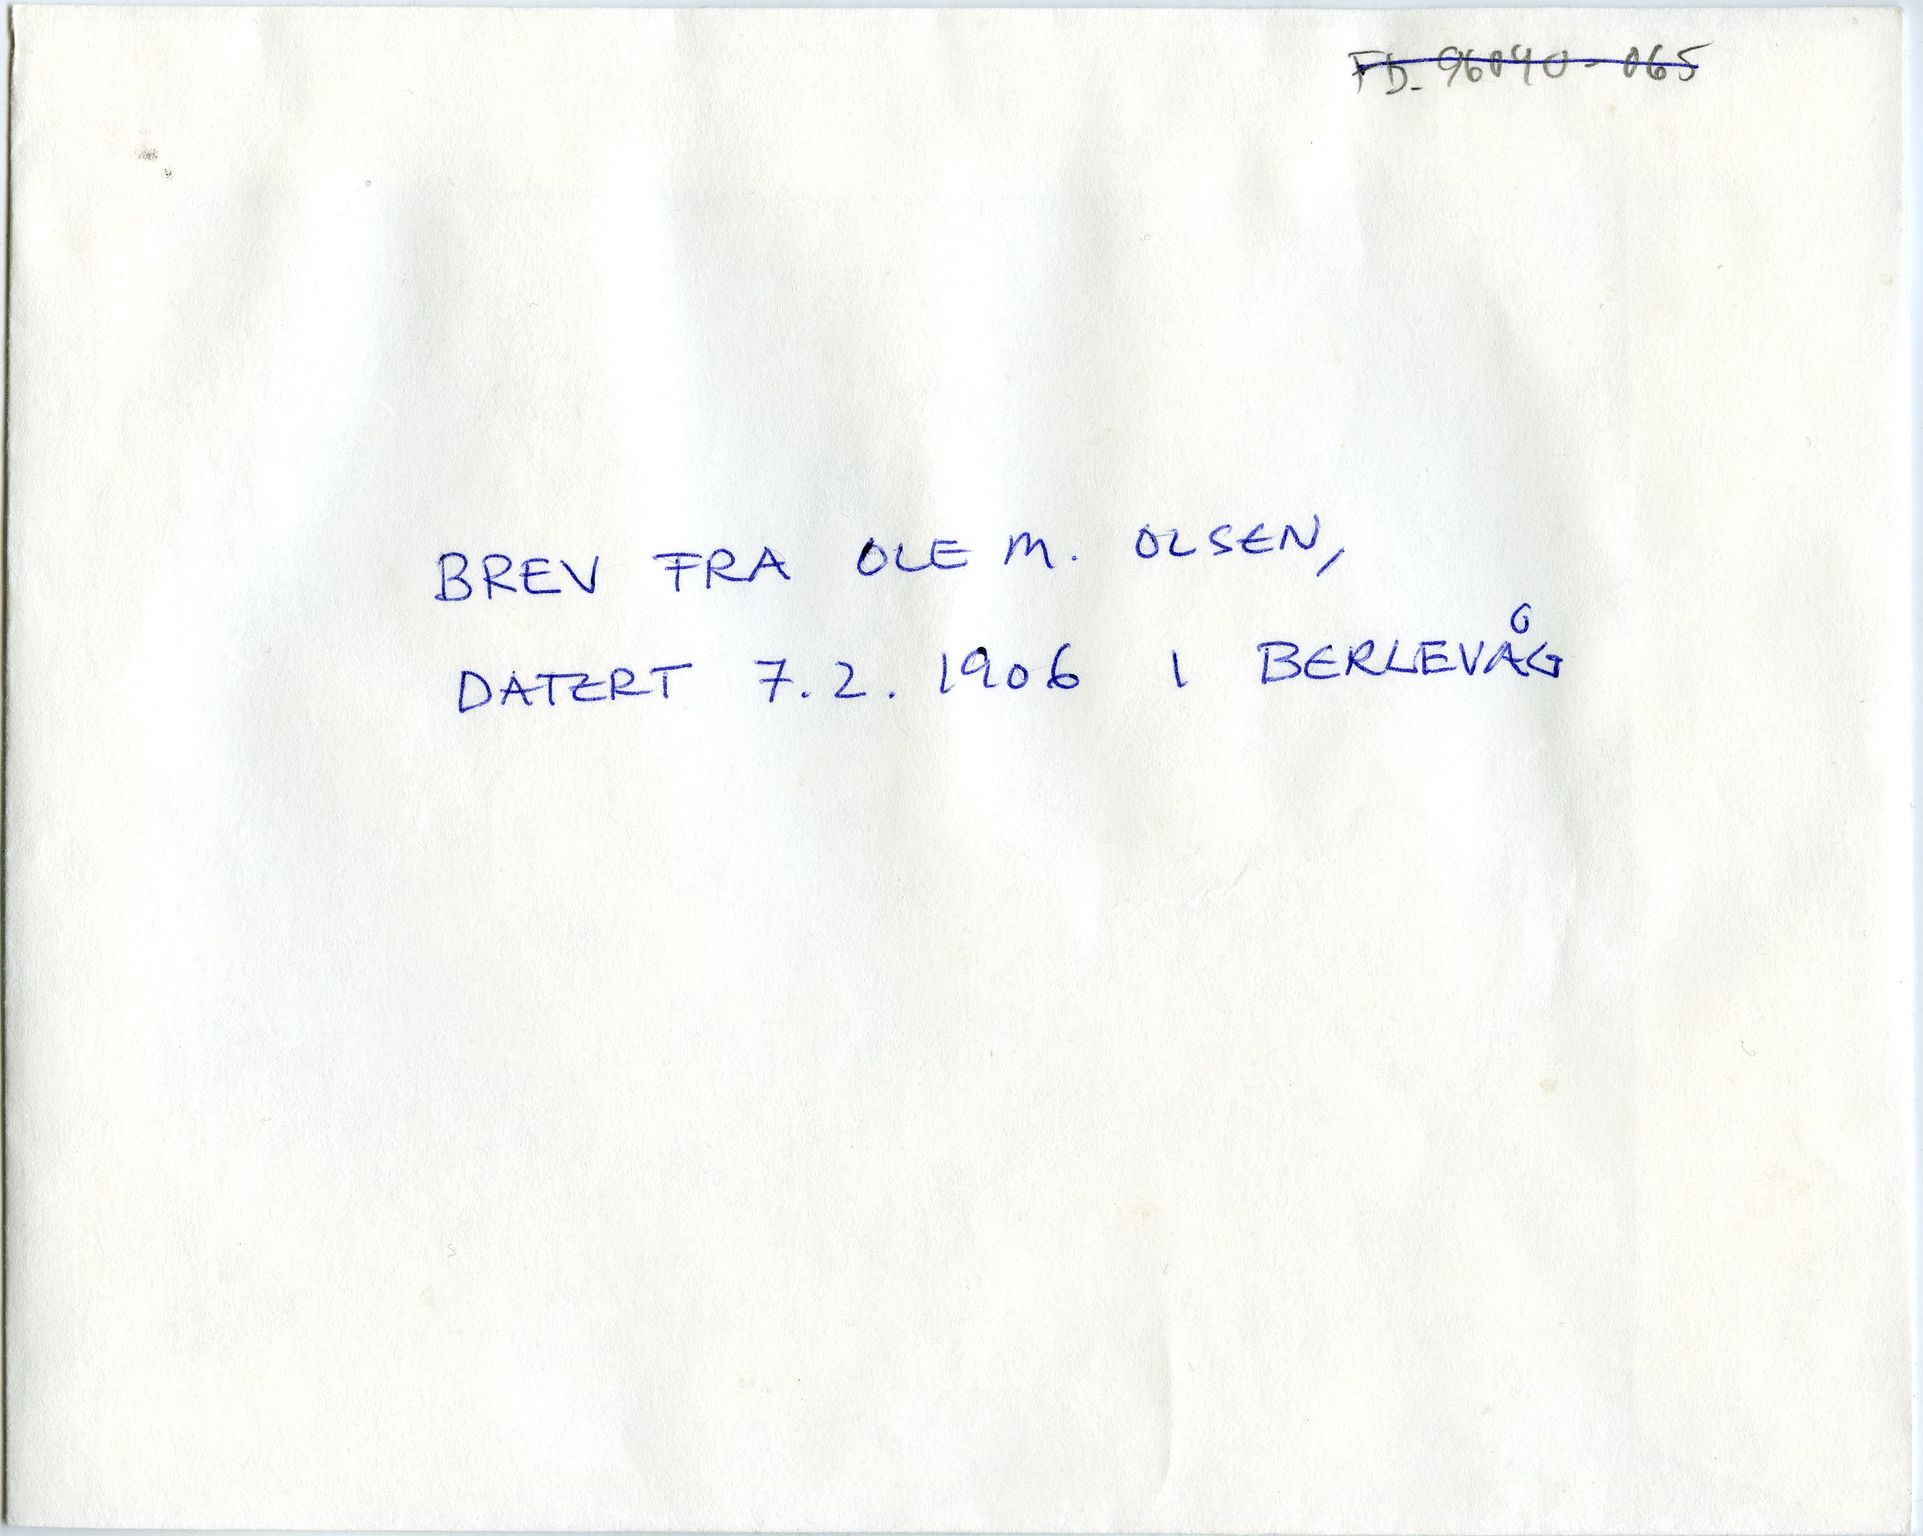 FD-96040-065
BREV FRA OLE M. OLSEN,
DATERT 7.2.1906 I BERLEVÅG